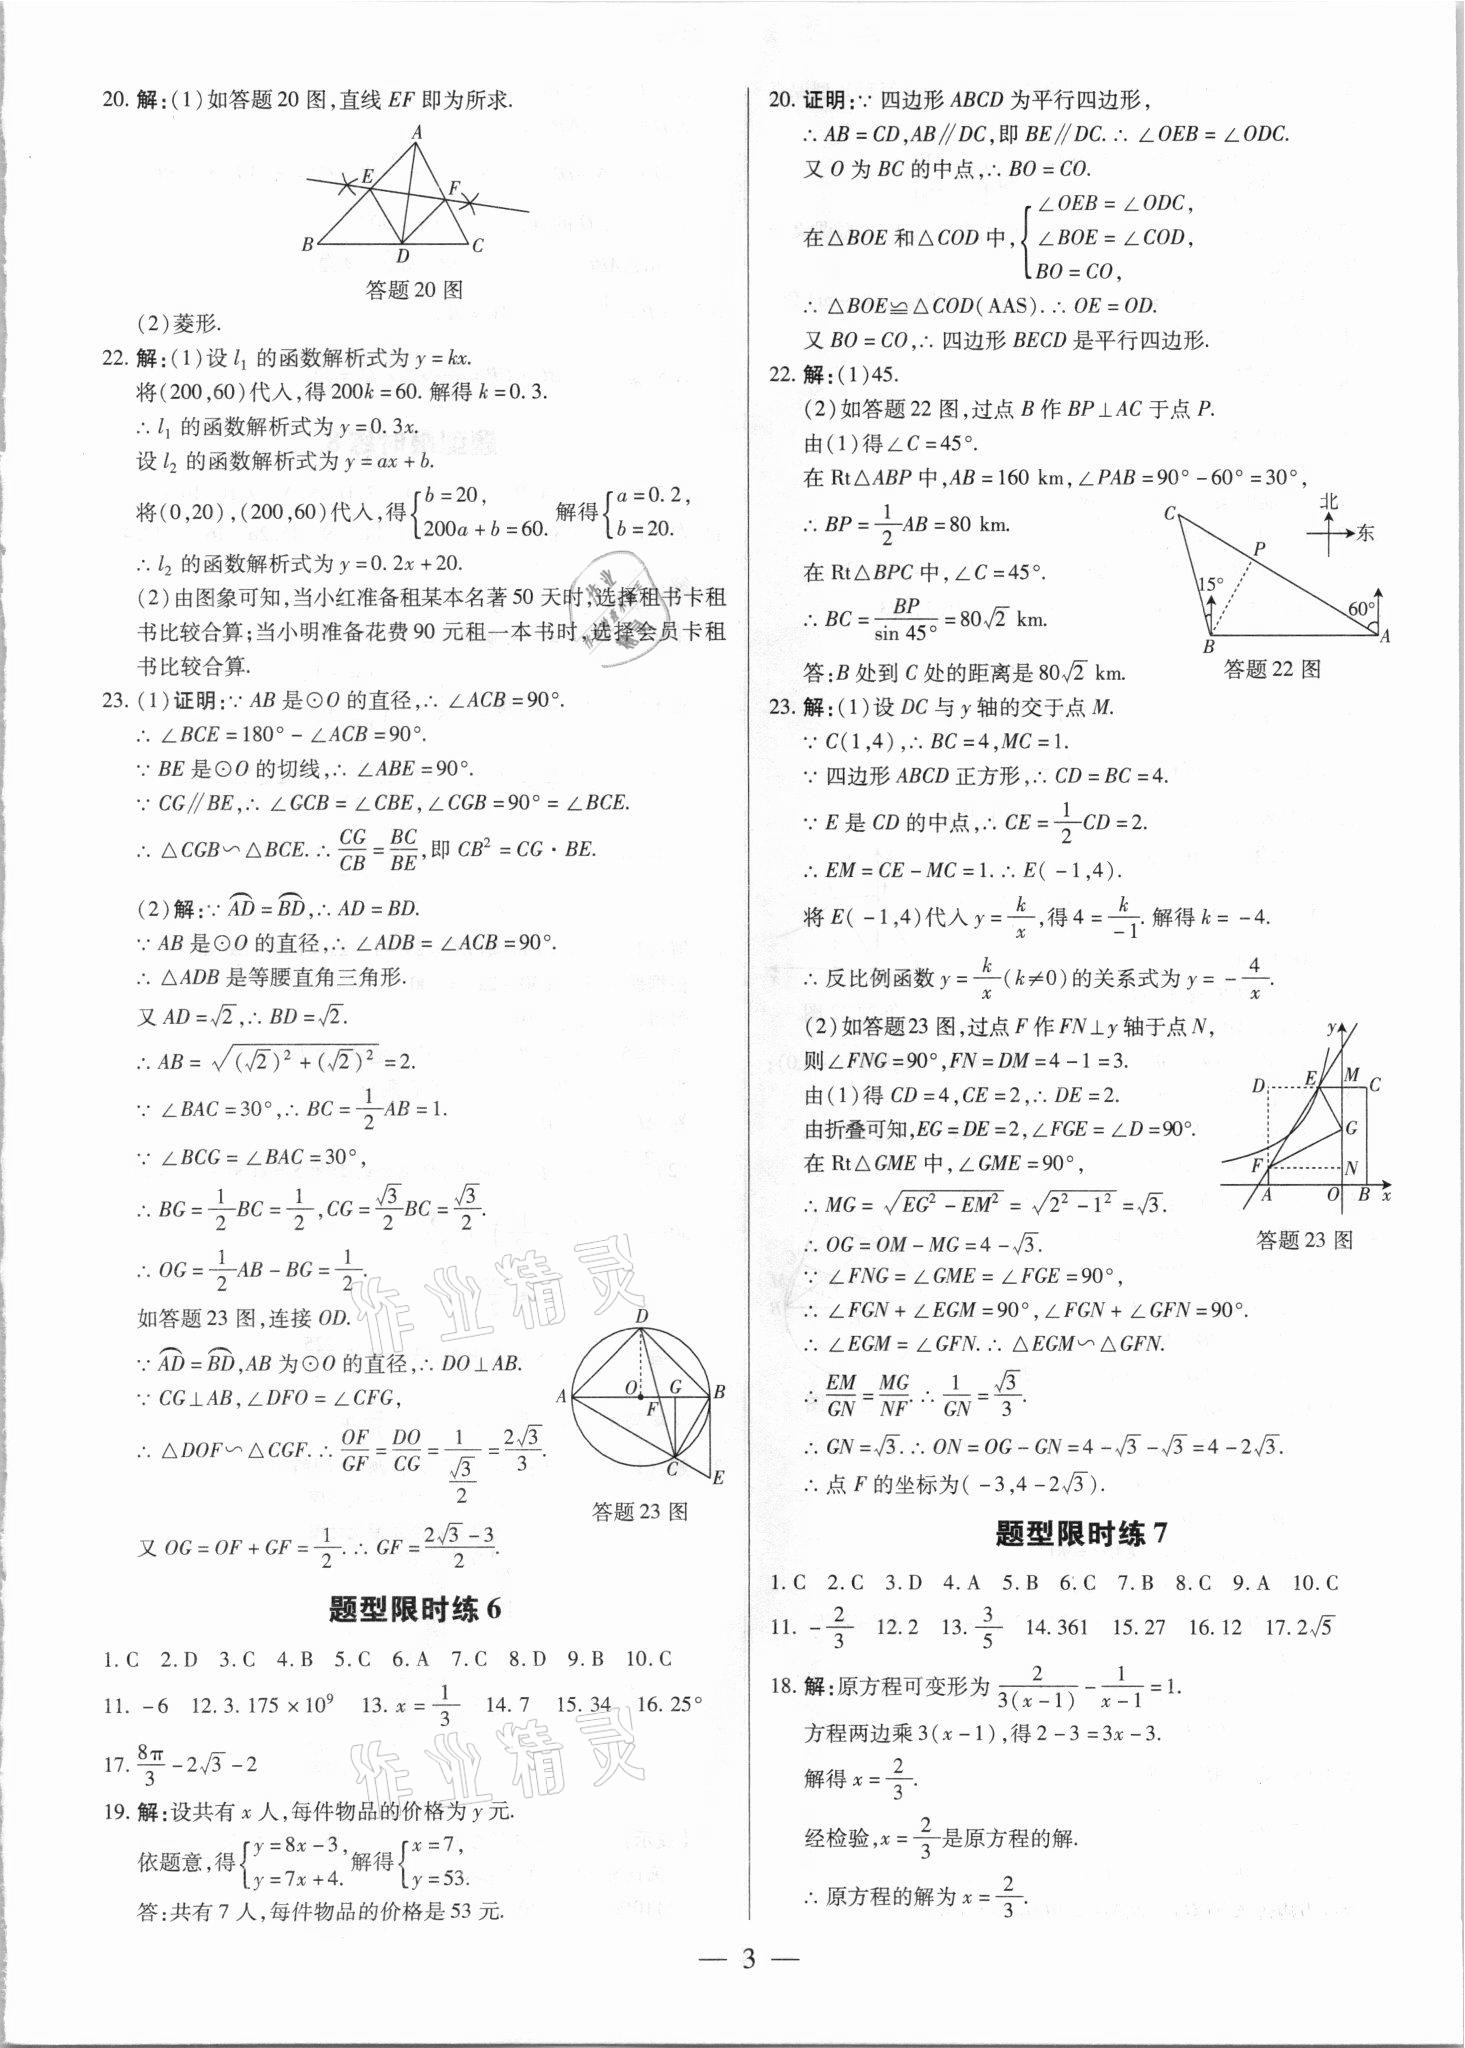 20. 解:(1)如答题20图,直线 EF 即为所求.
A
E
F
B
D
C
答题20图
(2)菱形.
22. 解:(1)设 l₁ 的函数解析式为 y=kx.
将(200,60)代入,得 200k=60. 解得 k=0.3.
∴ l₁ 的函数解析式为 y=0.3x.
设 l₂ 的函数解析式为 y=ax+b.
将(0,20),(200,60)代入,得{b=20, 200a+b=60. 解得{a=0.2, b=20.
∴ l₂ 的函数解析式为 y=0.2x+20.
(2)由图象可知,当小红准备租某本名著50天时,选择租书卡租
书比较合算;当小明准备花费90元租一本书时,选择会员卡租
书比较合算.
23. (1)证明:∵ AB 是⊙O 的直径,∴ ∠ACB=90°.
∴ ∠BCE=180°-∠ACB=90°.
∵ BE 是⊙O 的切线,∴ ∠ABE=90°.
∵ CG∥BE,∴ ∠GCB=∠CBE,∠CGB=90°=∠BCE.
∴ △CGB∽△BCE. ∴ CG/CB=BC/BE,即 CB²=CG·BE.
(2)解:∵ ⌒AD=⌒BD,∴ AD=BD.
∵ AB 是⊙O 的直径,∴ ∠ADB=∠ACB=90°.
∴ △ADB 是等腰直角三角形.
又 AD=√2,∴ BD=√2.
∴ AB=√((√2)²+(√2)²)=2.
∵ ∠BAC=30°,∴ BC=1/2 AB=1.
∵ ∠BCG=∠BAC=30°,
∴ BG=1/2 BC=1/2,CG=√3/2 BC=√3/2.
∴ OG=1/2 AB-BG=1/2.
如答题23图,连接 OD.
∵ ⌒AD=⌒BD,AB 为⊙O 的直径,∴ DO⊥AB.
∵ CG⊥AB,∠DFO=∠CFG,
∴ △DOF∽△CGF. ∴ OF/GF=DO/CG=1/(√3/2)=2√3/3.
D
A
O
F
G
B
C
E
答题23图
又 OG=OF+GF=1/2. ∴ GF=(2√3-3)/2.
题型限时练6
1. C 2. D 3. C 4. B 5. C 6. A 7. C 8. D 9. B 10. C
11. -6 12. 3.175×10⁹ 13. x=1/3 14. 7 15. 34 16. 25°
17. 8π/3-2√3-2
19. 解:设共有 x 人,每件物品的价格为 y 元.
依题意,得{y=8x-3, y=7x+4. 解得{x=7, y=53.
答:共有7人,每件物品的价格是53元.
20. 证明:∵ 四边形 ABCD 为平行四边形,
∴ AB=CD,AB∥DC,即 BE∥DC. ∴ ∠OEB=∠ODC.
又 O 为 BC 的中点,∴ BO=CO.
在△BOE 和△COD 中,{∠OEB=∠ODC, ∠BOE=∠COD, BO=CO,
∴ △BOE≌△COD(AAS). ∴ OE=OD.
又 BO=CO,∴ 四边形 BECD 是平行四边形.
22. 解:(1)45.
(2)如答题22图,过点 B 作 BP⊥AC 于点 P.
由(1)得∠C=45°.
在 Rt△ABP 中,AB=160 km,∠PAB=90°-60°=30°,
∴ BP=1/2 AB=80 km.
在 Rt△BPC 中,∠C=45°.
∴ BC=BP/sin 45°=80√2 km.
答:B 处到 C 处的距离是 80√2 km.
C
北
东
P
15°
60°
B
A
答题22图
23. 解:(1)设 DC 与 y 轴的交于点 M.
∵ C(1,4),∴ BC=4,MC=1.
∵ 四边形 ABCD 正方形,∴ CD=BC=4.
∵ E 是 CD 的中点,∴ CE=1/2 CD=2.
∴ EM=CE-MC=1. ∴ E(-1,4).
将 E(-1,4)代入 y=k/x,得 4=k/-1. 解得 k=-4.
∴ 反比例函数 y=k/x(k≠0)的关系式为 y=-4/x.
(2)如答题23图,过点 F 作 FN⊥y 轴于点 N,
则∠FNG=90°,FN=DM=4-1=3.
由(1)得 CD=4,CE=2,∴ DE=2.
由折叠可知,EG=DE=2,∠FGE=∠D=90°.
在 Rt△GME 中,∠GME=90°,
∴ MG=√(EG²-EM²)=√(2²-1²)=√3.
∴ OG=OM-MG=4-√3.
∵ ∠FNG=∠GME=∠FGE=90°,
∴ ∠FGN+∠EGM=90°,∠FGN+∠GFN=90°.
∴ ∠EGM=∠GFN. ∴ △EGM∽△GFN.
∴ EM/GN=MG/NF. ∴ 1/GN=√3/3.
∴ GN=√3. ∴ ON=OG-GN=4-√3-√3=4-2√3.
∴ 点 F 的坐标为(-3,4-2√3).
y
D
E
M
C
G
F
N
A
O
B
x
答题23图
题型限时练7
1. C 2. C 3. D 4. A 5. B 6. C 7. B 8. C 9. A 10. C
11. -2/3 12. 2 13. 3/5 14. 361 15. 27 16. 12 17. 2√5
18. 解:原方程可变形为 2/(3(x-1))-1/(x-1)=1.
方程两边乘 3(x-1),得 2-3=3x-3.
解得 x=2/3.
经检验,x=2/3 是原方程的解.
∴ 原方程的解为 x=2/3.
— 3 —
作业精灵
作业精灵